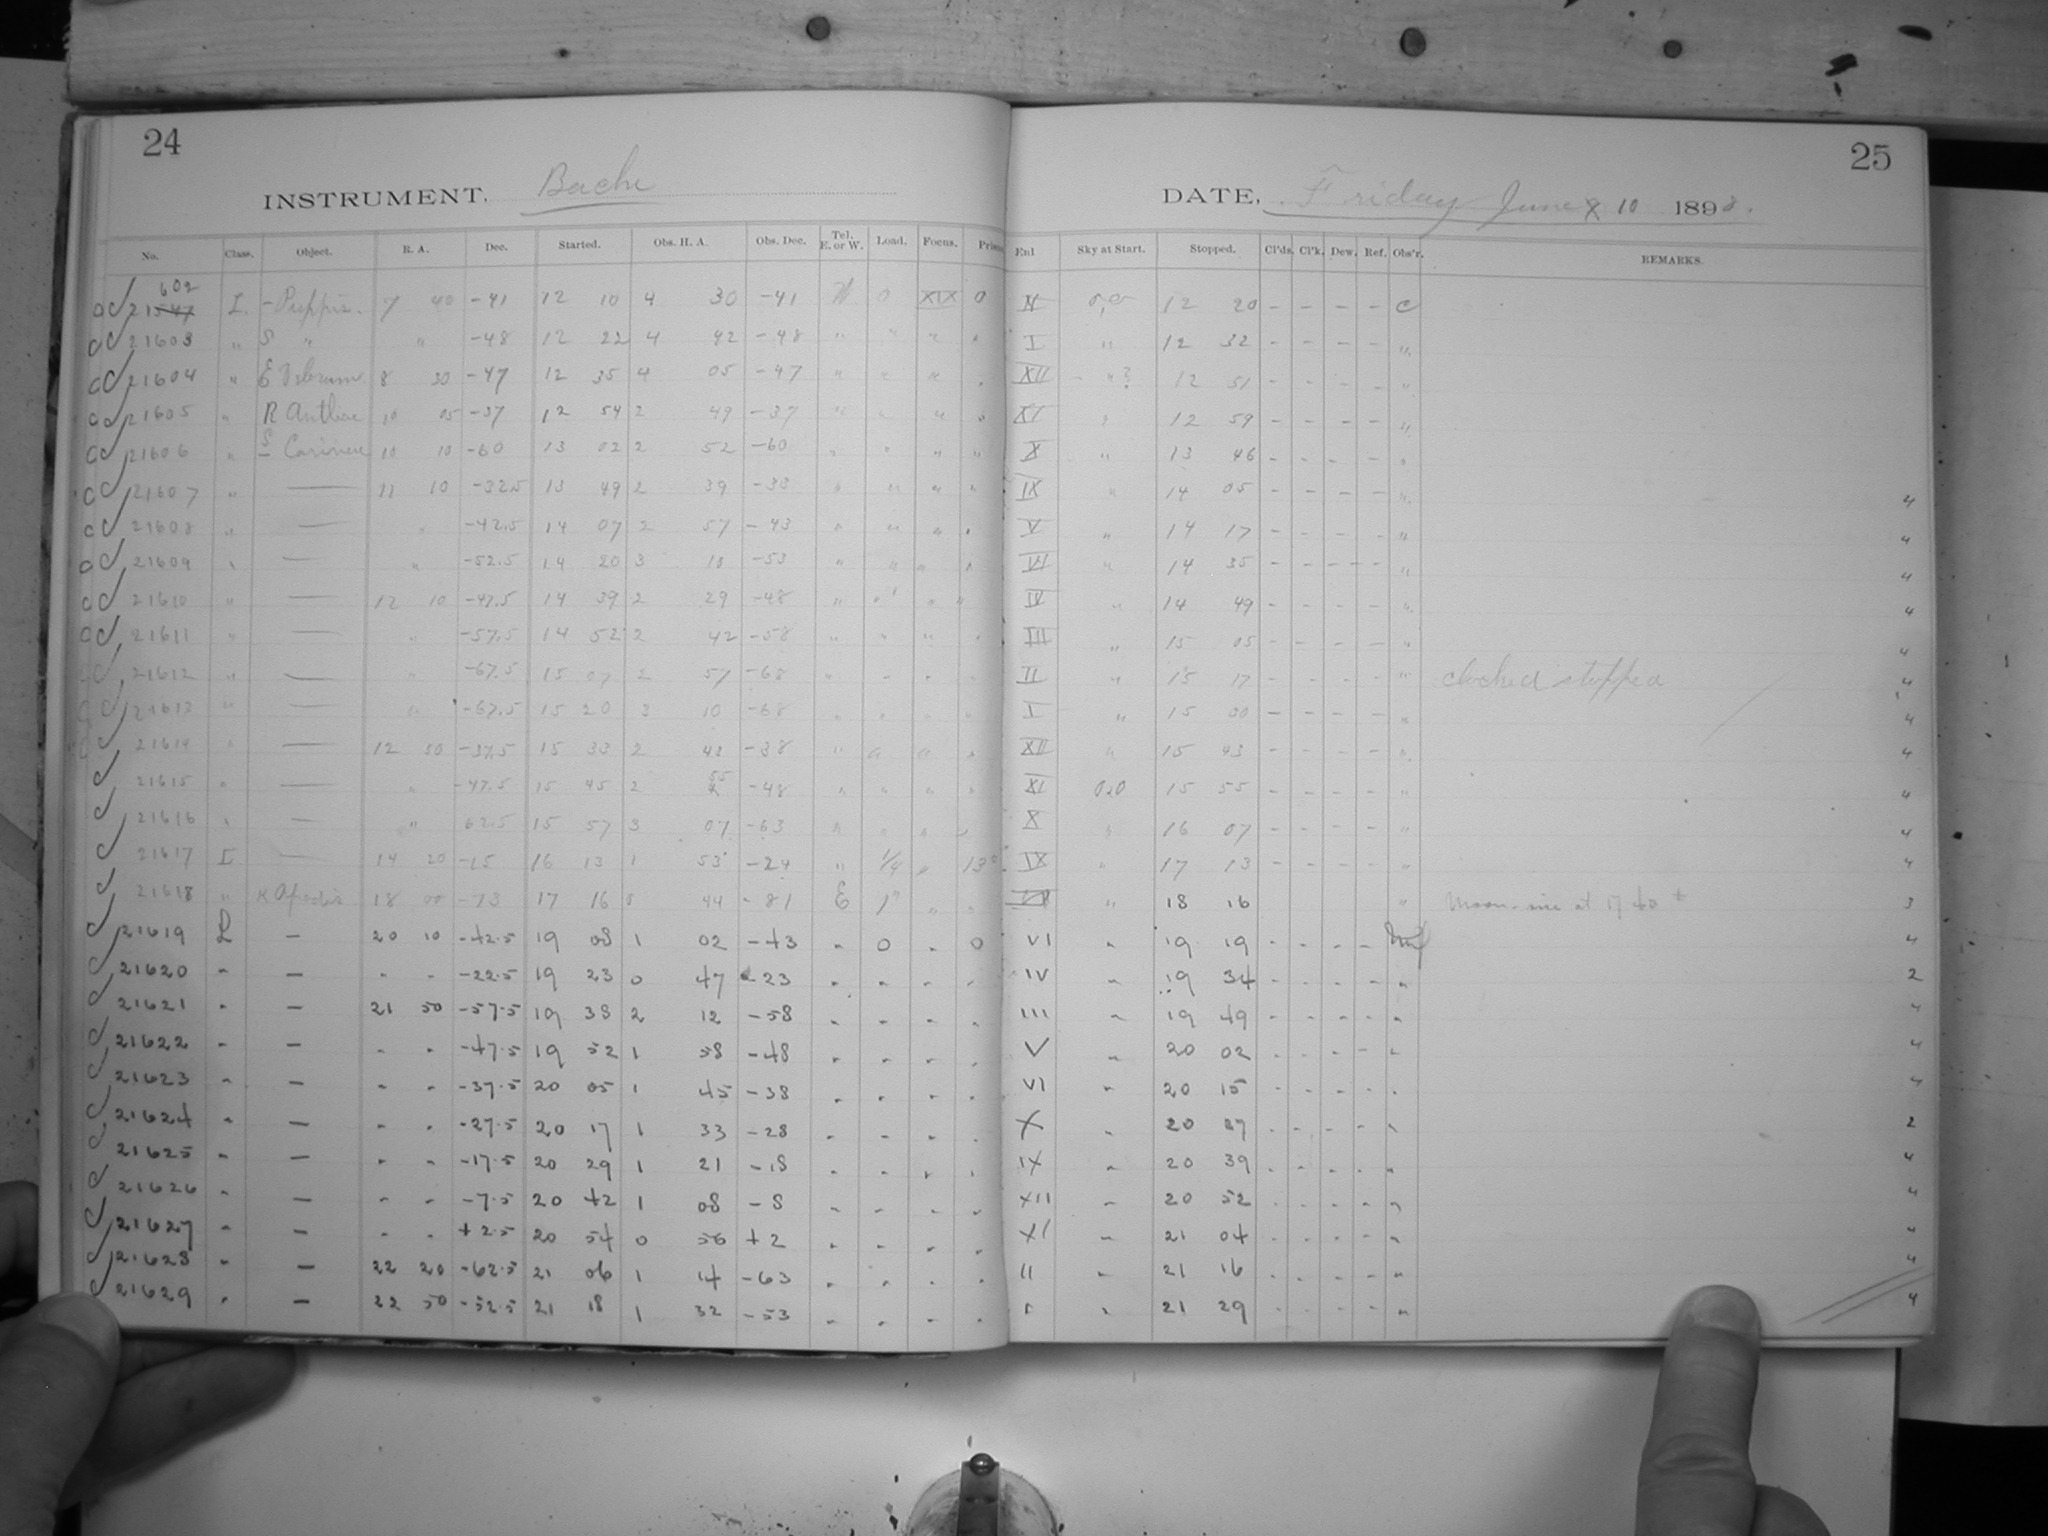 24
INSTRUMENT. Bache
No. Class. Object. R. A. Dec. Started. Obs. H. A. Obs. Dec. Tel. E. or W. Load. Focus.
602
21547 I. - Puppis. 7 40 -41 12 10 4 30 -41 W 0 XIX 0
21603 " S " " -48 12 22 4 42 -48 " " " "
21604 " E Velorum 8 30 -47 12 35 4 05 -47 " " "
21605 " R Antliae 10 05 -37 12 54 2 49 -37 " " "
21606 " S Carinae 10 10 -60 13 02 2 52 -60 " " " "
21607 " — 11 10 -32.5 13 49 2 39 -33 " " " "
21608 " — " -42.5 14 07 2 57 -43 " " " "
21609 " — " -52.5 14 20 3 10 -53 " " " "
21610 " — 12 10 -47.5 14 39 2 29 -48 " " " "
21611 " — " -57.5 14 52 2 42 -58 " " " "
21612 " — " -67.5 15 07 2 57 -68 " " " "
21613 " — " -67.5 15 20 3 10 -68 " " " "
21614 " — 12 50 -37.5 15 33 2 43 -38 " " " "
21615 " — " -47.5 15 45 2 55 -48 " " " "
21616 " — " 62.5 15 57 3 07 -63 " " " "
21617 I — 14 20 -15 16 13 1 53 -24 " 1/4 " 13°
21618 " K Apodis 18 00 -73 17 16 0 44 -81 E 1" " "
21619 L — 20 10 -42.5 19 08 1 02 -43 " 0 " 0
21620 " — " " -22.5 19 23 0 47 -23 " " " "
21621 " — 21 50 -57.5 19 38 2 12 -58 " " " "
21622 " — " " -47.5 19 52 1 58 -48 " " " "
21623 " — " " -37.5 20 05 1 45 -38 " " " "
21624 " — " " -27.5 20 17 1 33 -28 " " " "
21625 " — " " -17.5 20 29 1 21 -18 " " " "
21626 " — " " -7.5 20 42 1 08 -8 " " " "
21627 " — " " +2.5 20 54 0 56 +2 " " " "
21628 " — 22 20 -62.5 21 06 1 14 -63 " " " "
21629 " — 22 50 -52.5 21 18 1 32 -53 " " " "
25
DATE, Friday June 10 1898.
Enl Sky at Start. Stopped. Cl'ds. Cl'k. Dew. Ref. Obs'r. REMARKS.
12 20 - - - - C
I " 12 32 - - - - "
XII " ? 12 51 - - - - "
XI " 12 59 - - - - "
X " 13 46 - - - - "
IX " 14 05 - - - - " 4
V " 14 17 - - - - " 4
VI " 14 35 - - - - " 4
IV " 14 49 - - - - " 4
III " 15 05 - - - - " 4
II " 15 17 - - - - " clocked stopped 4
I " 15 30 - - - - " 4
XII " 15 43 - - - - " 4
XI 020 15 55 - - - - " 4
X " 16 07 - - - - " 4
IX " 17 13 - - - - " 4
" 18 16 " Moon-rise at 17 40 ± 3
VI " 19 19 - - - - 4
IV " 19 34 - - - - " 2
III " 19 49 - - - - " 4
V " 20 02 - - - - " 4
VI " 20 15 - - - - " 4
X " 20 27 - - - - " 2
IX " 20 39 - - - - " 4
XII " 20 52 - - - - " 4
XI " 21 04 - - - - " 4
II " 21 16 - - - - " 4
I " 21 29 - - - - " 4